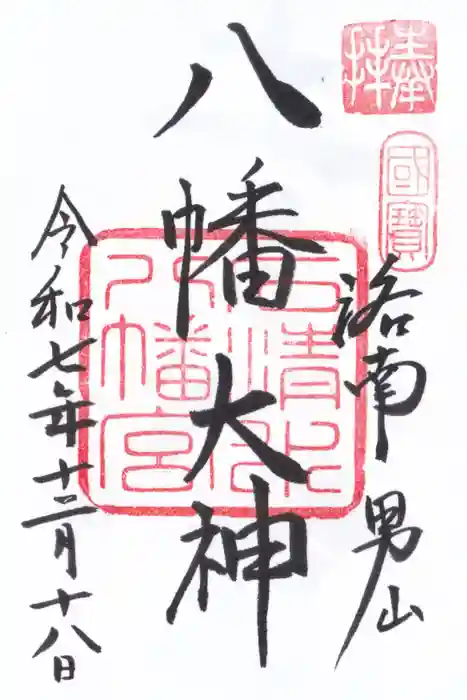 奉拝
國寶
洛南 男山
八幡大神
石清水
八幡宮
令和七年十二月十八日